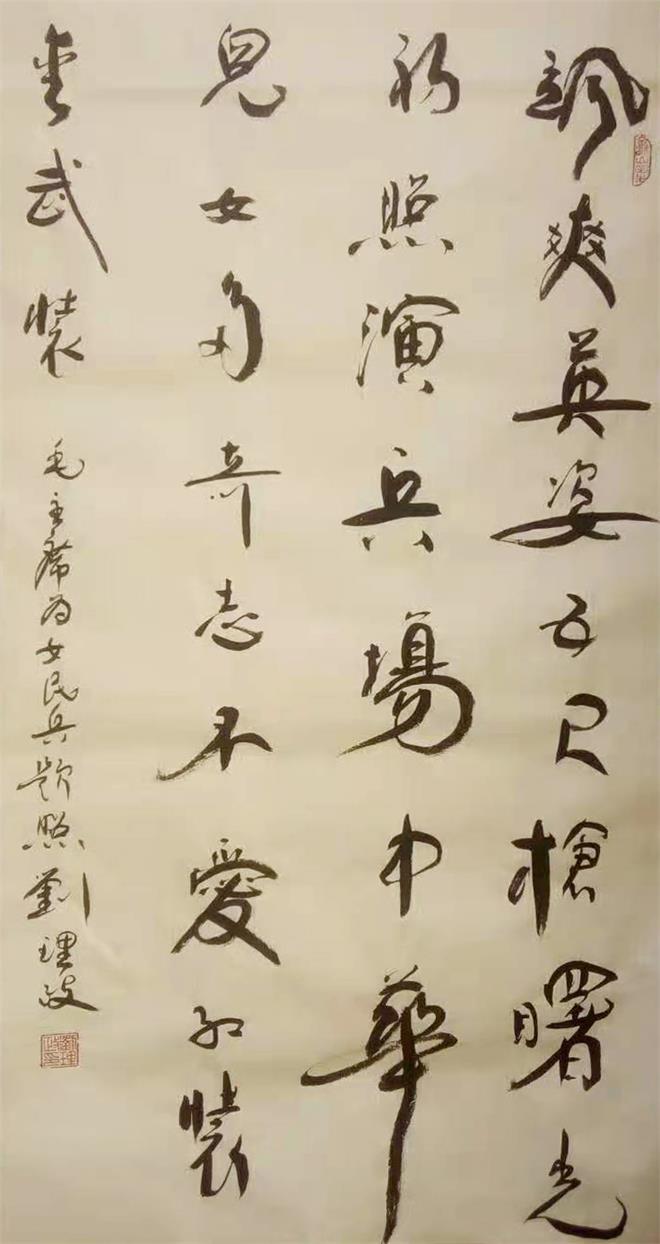 颯爽英姿五尺槍曙光
初照演兵場中華
兒女多奇志不愛紅裝
愛武裝
毛主席为女民兵题照劉理政